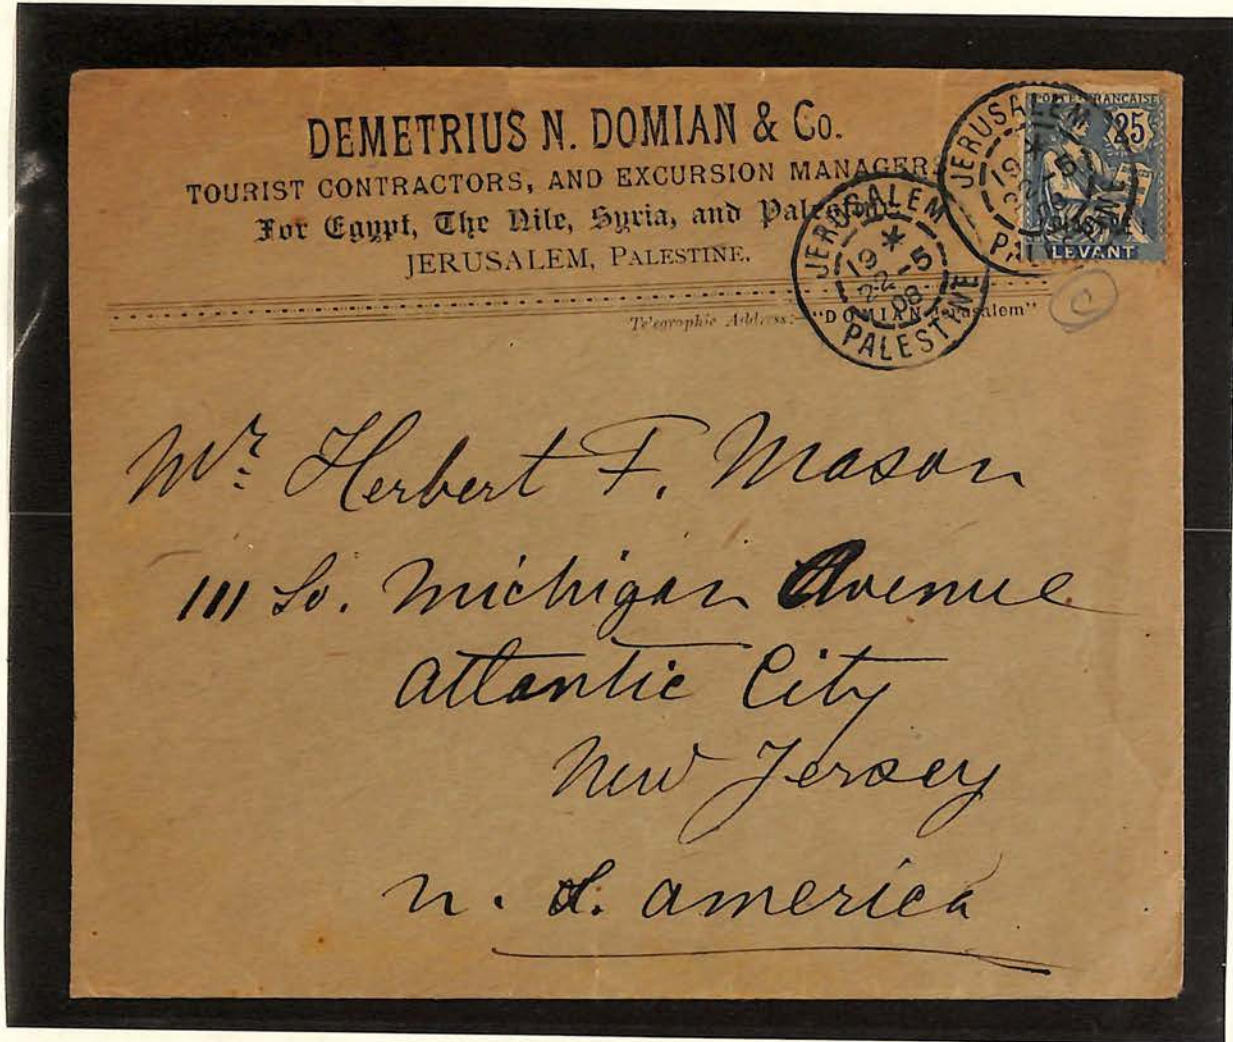 DEMETRIUS N. DOMIAN & Co.
TOURIST CONTRACTORS, AND EXCURSION MANAGERS
For Egypt, The Nile, Syria, and Palestine
JERUSALEM, PALESTINE.
Telegraphic Address:- "DOMIAN Jerusalem"
JERUSALEM
19 *
22 -5
08
PALESTINE
JERUSALEM
19 *
22 -5
08
PALESTINE
POSTE FRANÇAISE
25
PIASTRE
LEVANT
Mr. Herbert F. Mason
111 So. Michigan Avenue
Atlantic City
New Jersey
N. America